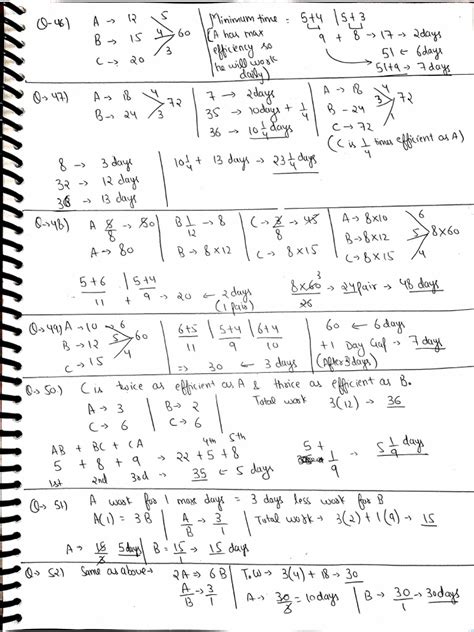 Q-46) A → 12 5
B → 15 4 60
C → 20 3
Minimum time = 5+4 | 5+3
(A has max 9 + 8 → 17 → 2days
efficiency so 51 ← 6days
he will work 51+9 → 7 days
daily)
Q→ 47) A → 18 4
B → 24 3 72
7 → 2days
35 → 10days + 1/4
36 → 10 1/4 days
A → 18 4
B - 24 3 72
C → 72 1
(C is 1/4 times efficient as A)
8 → 3 days
32 → 12 days
36 → 13 days
10 1/4 + 13 days → 23 1/4 days
Q→ 48) A 8/8 → 80
A → 80
B 1/12 → 8
B → 8×12
C → 8×15
A → 8×10 6
B → 8×12 5 8×60
C → 8×15 4
5+6 | 5+4
11 + 9 → 20 ← 2 days
(1 pair)
8×60/20 → 24pair → 48 days
Q→ 49) A → 10 6
B → 12 5 60
C → 15 4
6+5 | 5+4 | 6+4
11 9 10
⇒ 30 ← 3 days
60 ← 6 days
+1 Day Gap → 7 days
(After 3 days)
Q→ 50) C is twice as efficient as A & thrice as efficient as B.
A → 3 | B → 2 Total work 3(12) → 36
C → 6 | C → 6
AB + BC + CA 4th 5th
5 + 8 + 9 → 22+5+8
1st 2nd 3rd → 35 ← 5 days
5 + 1/9 → 5 1/9 days
Q→ 51) A work for 1 more days = 3 days less work for B
A(1) = 3B | A/B → 3/1 | Total work → 3(2) + 1(9) → 15
A → 15/3 5days | B = 15/1 → 15 days
Q→ 52) Same as above → 2A → 6B | T.W → 3(4) + 18 → 30
A/B → 3/1 | A → 30/3 = 10days | B → 30/1 → 30days